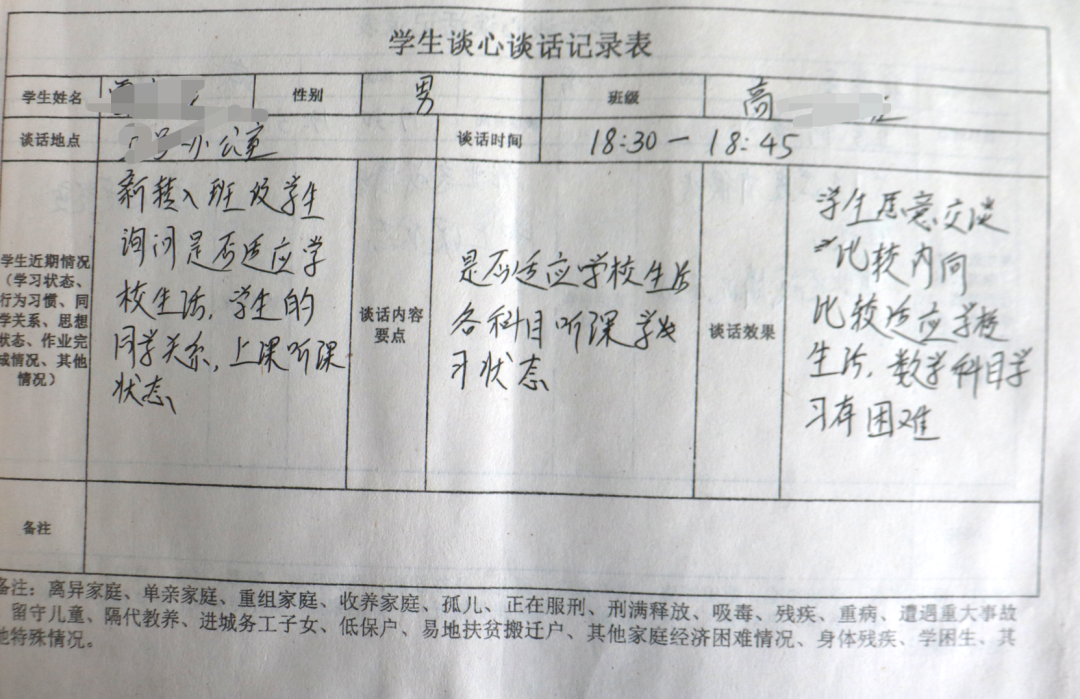 学生谈心谈话记录表
学生姓名 性别 男 班级 高
谈话地点 号小公寓 谈话时间 18:30一18:45
学生近期情况
（学习状态、
行为习惯、同
学关系、思想
状态、作业完
成情况、其他
情况）
新转入班级学生
询问是否适应学
校生活，学生的
同学关系，上课听课
状态
谈话内容
要点
是否适应学校生活
各科目听课学
习状态
谈话效果
学生愿意交谈
比较内向
比较适应学校
生活，数学科目学
习存困难
备注
备注：离异家庭、单亲家庭、重组家庭、收养家庭、孤儿、正在服刑、刑满释放、吸毒、残疾、重病、遭遇重大事故
留守儿童、隔代教养、进城务工子女、低保户、易地扶贫搬迁户、其他家庭经济困难情况、身体残疾、学困生、其
他特殊情况。